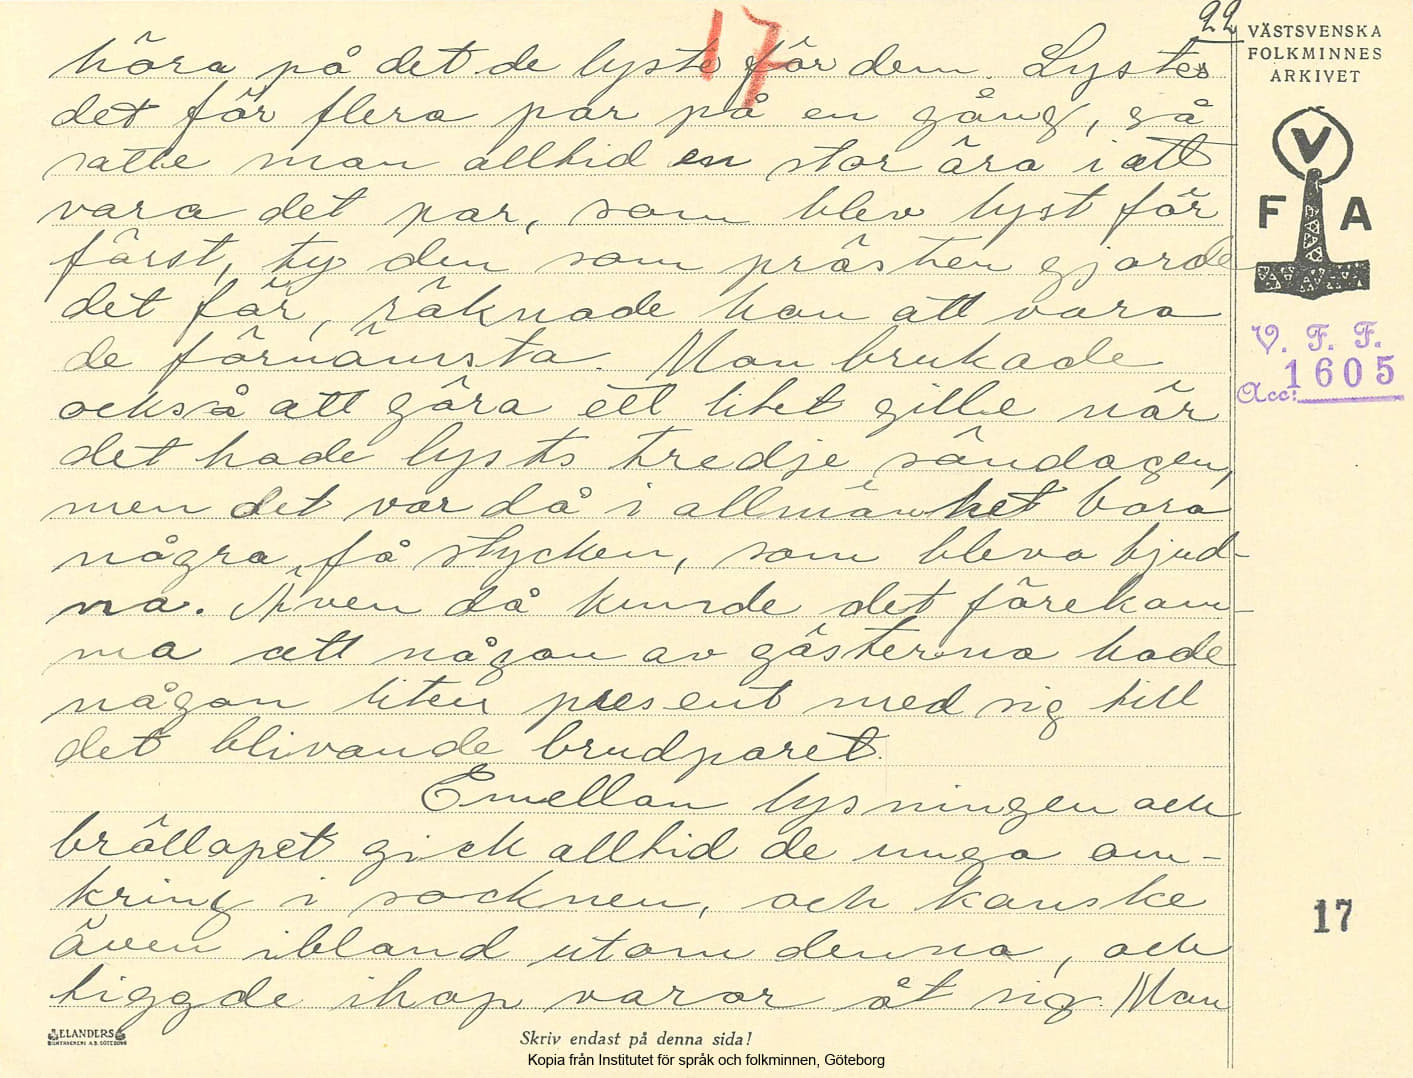 17
22
höra på det de lyste för dem. Lystes
det för flera par på en gång, så
satte man alltid en stor ära i att
vara det par, som blev lyst för
först, ty den som prästen gjorde
det för, räknade han att vara
de förnämsta. Man brukade
också att göra ett litet gille när
det hade lysts tredje söndagen,
men det var då i allmänhet bara
några få stycken, som bleva bjud-
na. Även då kunde det förekom-
ma att någon av gästerna hade
någon liten present med sig till
det blivande brudparet.
Emellan lysningen och
bröllopet gick alltid de unga om-
kring i socknen, och kanske
även ibland utom denna, och
tiggde ihop varor åt sig. Man
VÄSTSVENSKA
FOLKMINNES
ARKIVET
V
F A
V. F. F.
Acc: 1605
17
ELANDERS
Skriv endast på denna sida!
Kopia från Institutet för språk och folkminnen, Göteborg